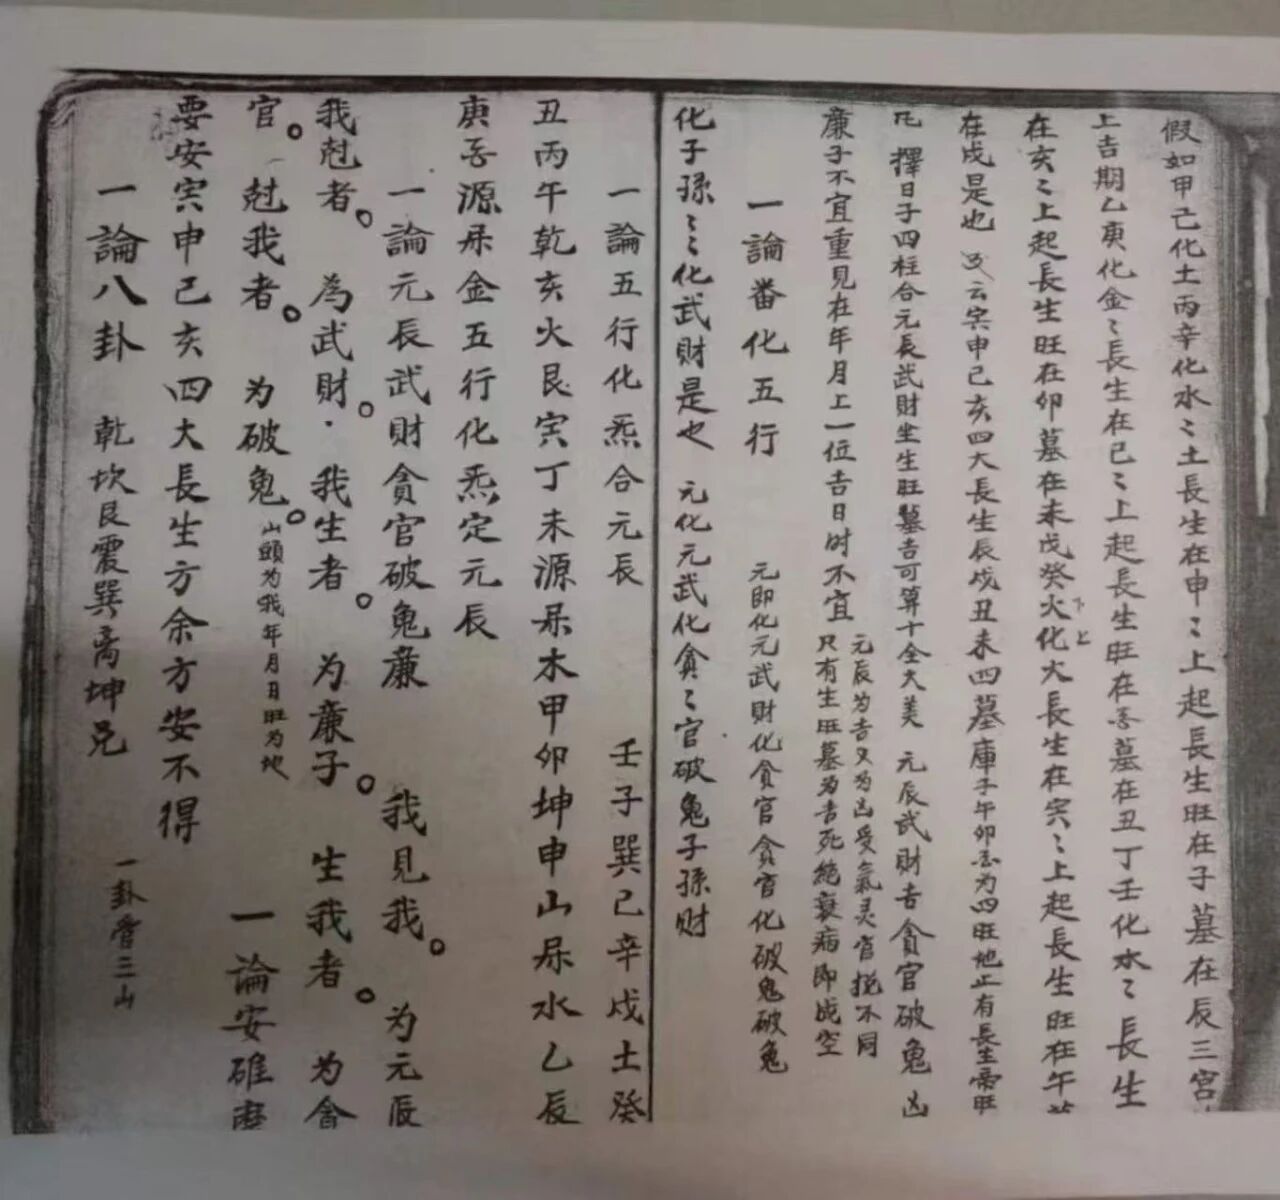 假如甲己化土丙辛化水〻土長生在申〻上起長生旺在子墓在辰三宮
上吉期乙庚化金〻長生在巳〻上起長生旺在酉墓在丑丁壬化水〻長生
在亥〻上起長生旺在卯墓在未戊癸火化大長生在寅〻上起長生旺在午
下上
在戍是也 又云寅申巳亥四大長生辰戍丑未四墓庫子午卯酉为四旺地止有長生帝旺
凡擇日子四柱合元長武財坐生旺墓吉可算十全大美 元辰武財吉貪官破鬼凶
廉子不宜重見在年月上一位吉日时不宜
元辰为吉又为凶受氣灵官
不同
只有生旺墓为吉死絕衰病即成空
一論番化五行
元即化元武財化貪官貪官化破鬼破鬼
化子孫〻化武財是也 元化元武化貪〻官破鬼子孫財
一論五行化炁合元辰 壬子巽巳辛戍土癸
丑丙午乾亥火艮寅丁未源屎木甲卯坤申山屎水乙辰
庚酉源屎金五行化炁定元辰
一論元辰武財貪官破鬼蔗 我見我。为元辰
我尅者。 為武財。我生者。 为廉子。 生我者。 为會
官。 尅我者。 为破鬼。
山頭为我年月日旺为地
一論安碓磨
要安寅申己亥四大長生方余方安不得
一論八卦 乾坎艮震巽离坤兑 一卦管三山